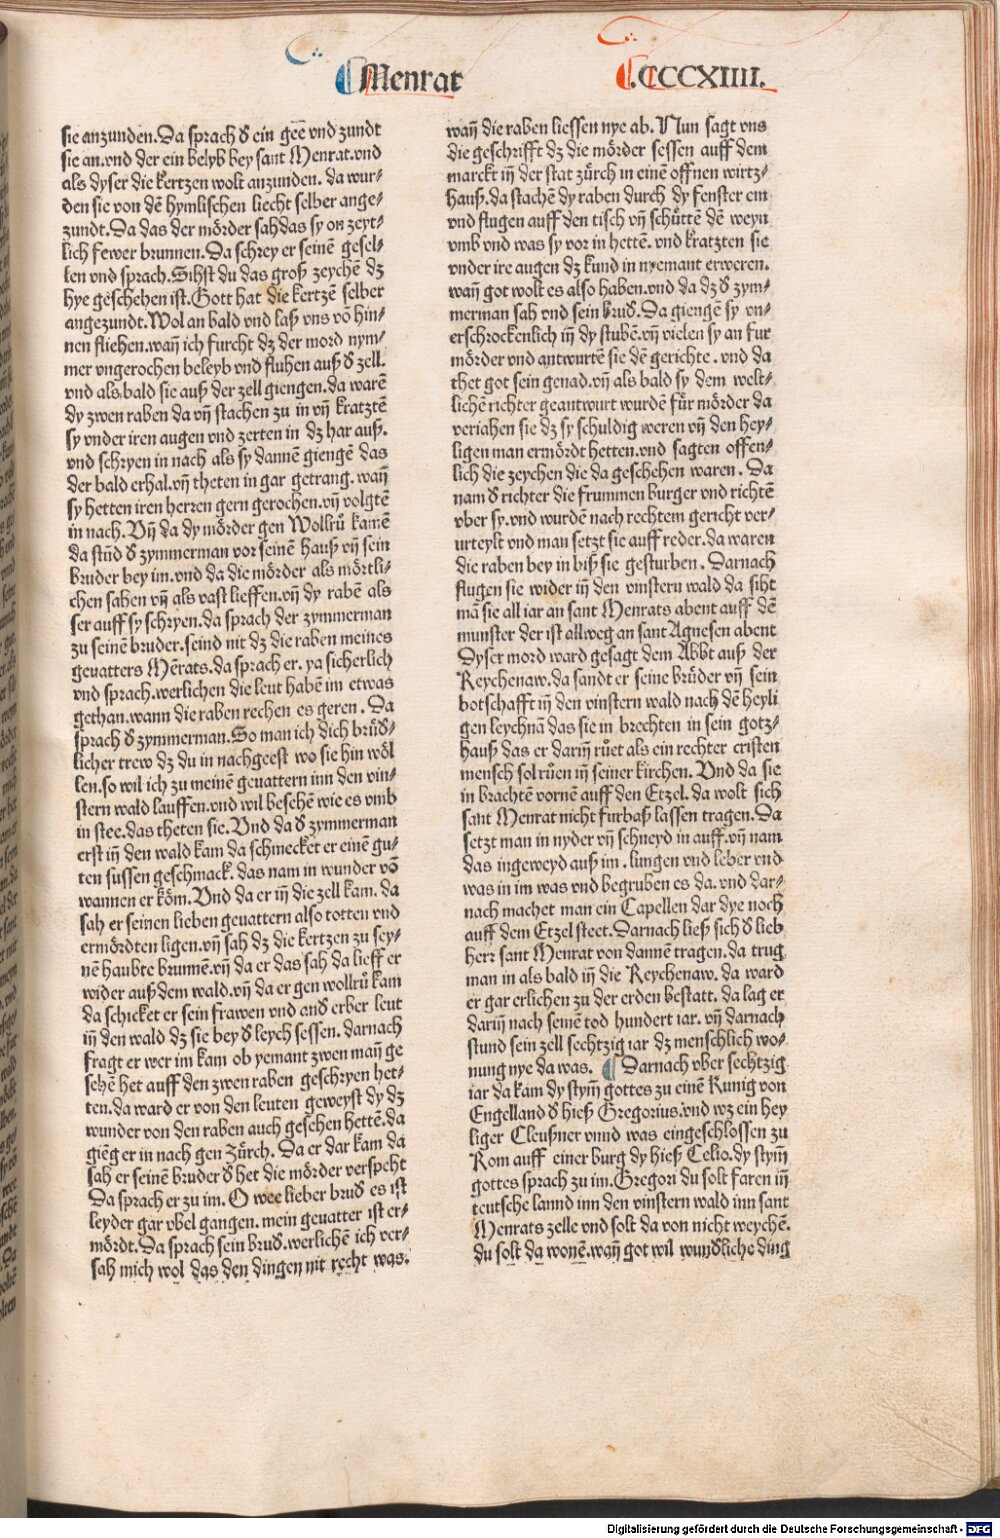 Menrat
.CCCXIIII.
sie anzunden.Da sprach d̕ ein gee vnd zundt
sie an.vnd der ein belyb bey sant Menrat.vnd
als dyser die kertzen wolt anzunden. da wur⸗
den sie von dē hymlischen liecht selber ange⸗
zundt.Da das der mörder sahdas sy on zeyt⸗
lich fewer brunnen.Da schrey er seinē gesel⸗
len vnd sprach.Sihst du das groß zeychē dz
hye geschehen ist.Gott hat die kertzē selber
angezundt.Wol an bald vnd laß vns vō hin⸗
nen fliehen.wañ ich furcht dz der mord nym⸗
mer vngerochen beleyb vnd fluhen auß d̕ zell.
vnd als bald sie auß der zell giengen.da warē
dy zwen raben da vñ stachen zu in vñ kratztē
sy vnder iren augen vnd zerten in dz har auß.
vnd schryen in nach als sy dannē giengē das
der bald erhal.vñ theten in gar getrang.wañ
sy hetten iren herren gern gerochen.vñ volgtē
in nach.Vñ da dy mörder gen Wollrů kamē
da stůd d̕ zymmerman vor seinē hauß vñ sein
bruder bey im.vnd da die mörder als mörtli⸗
chen sahen vñ als vast lieffen.vñ dy rabē als
ser auff sy schryen.da sprach der zymmerman
zu seinē bruder.seind nit dz die raben meines
geuatters Mērats.da sprach er. ya sicherlich
vnd sprach.werlichen die leut habē im etwas
gethan.wann die raben rechen es geren. Da
sprach d̕ zymmerman.So man ich dich brůd⸗
licher trew dz du in nachgeest wo sie hin wöl
len.so wil ich zu meinē geuattern inn den vin⸗
stern wald lauffen.vnd wil besehē wie es vmb
in stee.das theten sie.Vnd da d̕ zymmerman
erst iñ den wald kam da schmecket er einē gu⸗
ten sussen geschmack. das nam in wunder vō
wannen er köm.Vnd da er iñ die zell kam. da
sah er seinen lieben geuattern also totten vnd
ermördten ligen.vñ sah dz die kertzen zu sey⸗
nē haubte brunnē.vñ da er das sah da lieff er
wider auß dem wald.vñ da er gen wollrů kam
da schicket er sein frawen vnd and̕ erber leut
iñ den wald dz sie bey d̕ leych sessen. darnach
fragt er wer im kam ob yemant zwen mañ ge
sehē het auff den zwen raben geschryen het⸗
ten.da ward er von den leuten geweyst dy dz
wunder von den raben auch gesehen hettē.da
gieg er in nach gen Zürch. Da er dar kam da
sah er seinē bruder d̕ het die mörder verspeht
Da sprach er zu im. O wee lieber brud̕ es ist
leyder gar vbel gangen. mein geuatter ist er⸗
mördt.Da sprach sein brud̕.werlichē ich ver⸗
sah mich wol das den dingen nit recht was.
wañ die raben liessen nye ab. Nun sagt vns
die geschrifft dz die mörder sessen auff dem
marckt iñ der stat zürch in einē offnen wirtz⸗
hauß.da stachē dy raben durch dy fenster ein
vnd flugen auff den tisch vñ schüttē dē weyn
vmb vnd was sy vor in hettē. vnd kratzten sie
vnder ire augen dz kund in nyemant erweren.
wañ got wolt es also haben.vnd da dz d̕ zym⸗
merman sah vnd sein brud̕.Da giengē sy vn⸗
erschrockenlich iñ dy stubē.vñ vielen sy an fur
mörder vnd antwurtē sie dē gerichte. vnd da
thet got sein genad.vñ als bald sy dem welt⸗
lichē richter geantwurt wurdē für mörder da
veriahen sie dz sy schuldig weren vñ den hey⸗
ligen man ermördt hetten.vnd sagten offen⸗
lich die zeychen die da geschehen waren. Da
nam d̕ richter die frummen burger vnd richtē
vber sy.vnd wurdē nach rechtem gericht ver⸗
urteylt vnd man setzt sie auff reder.da waren
die raben bey in biß sie gesturben. Darnach
flugen sie wider iñ den vinstern wald da siht
mā sie all iar an sant Menrats abent auff dē
munster der ist allweg an sant Agnesen abent
Dyser mord ward gesagt dem Abbt auß der
Reychenaw.da sandt er seine brüder vñ sein
botschafft iñ den vinstern wald nach dē heyli
gen leychnā das sie in brechten in sein gotz⸗
hauß das er dariñ růet als ein rechter cristen
mensch sol růen iñ seiner kirchen. Vnd da sie
in brachtē vornē auff den Etzel. da wolt sich
sant Menrat nicht furbaß lassen tragen.Da
setzt man in nyder vñ schneyd in auff.vñ nam
das ingeweyd auß im . lungen vnd leber vnd
was in im was vnd begruben es da. vnd dar⸗
nach machet man ein Capellen dar dye noch
auff dem Etzel steet.Darnach ließ sich d̕ lieb
herr sant Menrat von dannē tragen.da trug
man in als bald iñ die Reychenaw. da ward
er gar erlichen zu der erden bestatt. da lag er
dariñ nach seinē tod hundert iar. vñ darnach
stund sein zell sechtzig iar dz menschlich wo⸗
nung nye da was. Darnach vber sechtzig
iar da kam dy stym̄ gottes zu einē Kunig von
Engelland d̕ hieß Gregorius.vnd wz ein hey
liger Cleußner vnnd was eingeschlossen zu
Rom auff einer burg dy hieß Celio.dy stym̄
gottes sprach zu im.Gregori du solt faren iñ
teutsche lannd inn den vinstern wald inn sant
Menrats zelle vnd solt da von nicht weychē.
du solt da wonē.wañ got wil wund̕liche ding
Digitalisierung gefördert durch die Deutsche Forschungsgemeinschaft - DFG